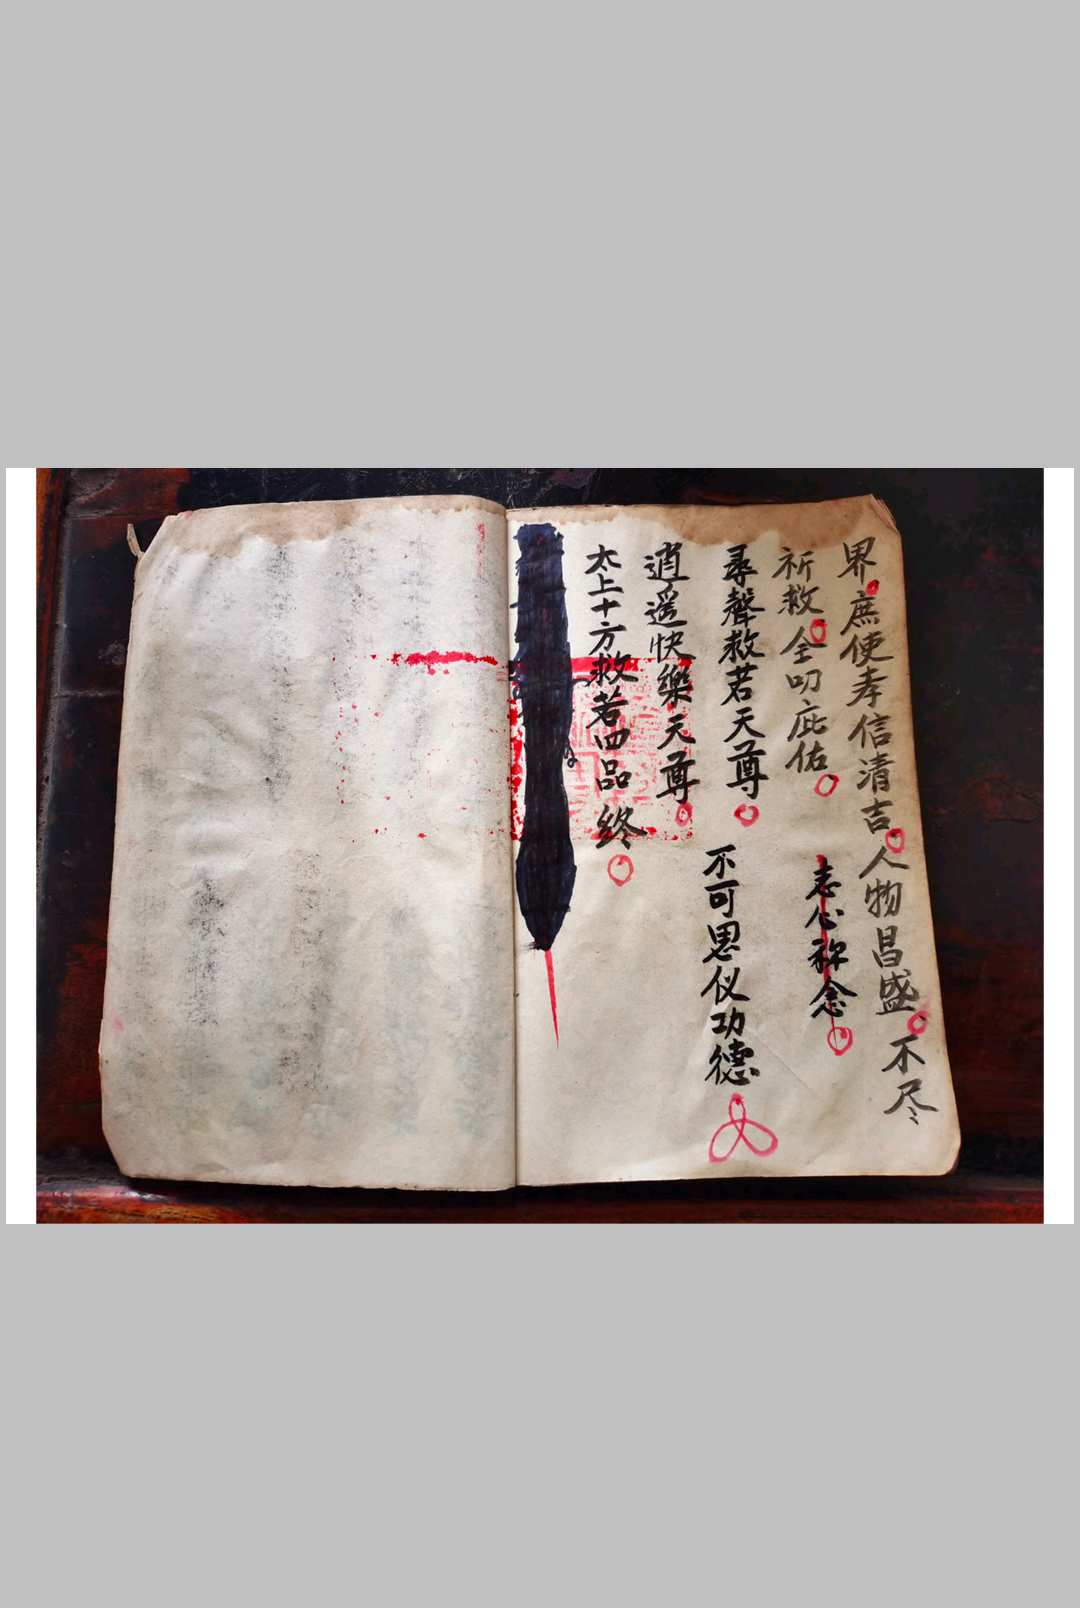 界庶使孝信清吉人物昌盛不尽
祈救全叨庇佑 志心称念
尋聲救若天尊 不可思仪功德
逍遥快樂天尊
太上十方救若四品終